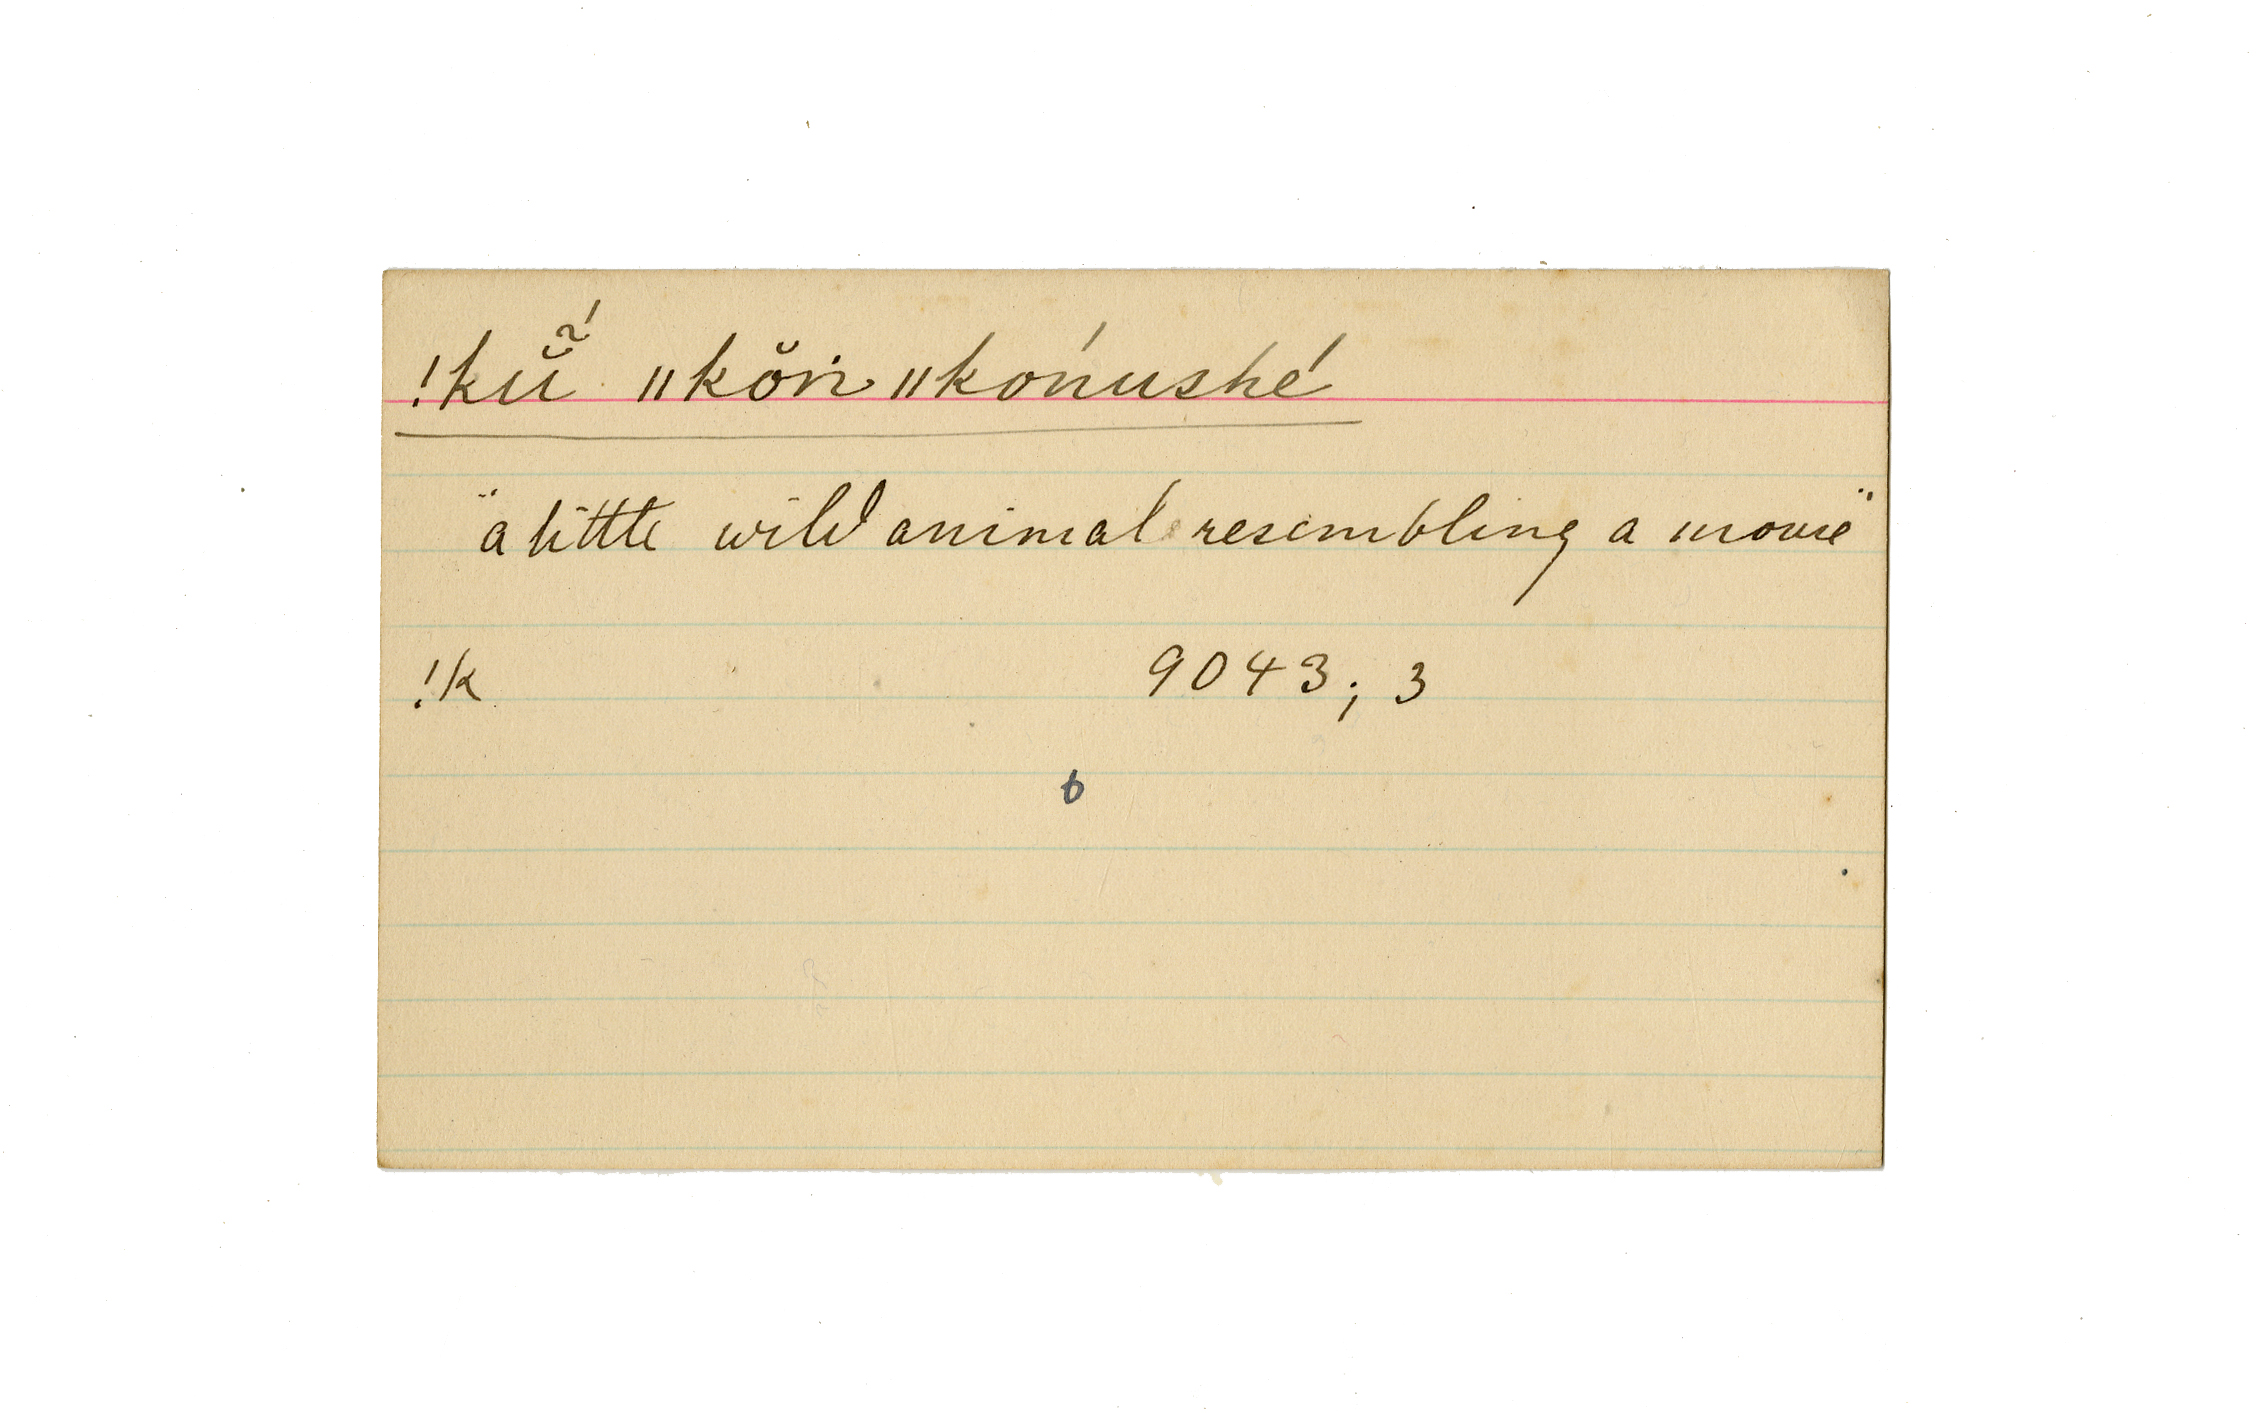 !kŭ̃́ ǁkŏṅ ǁkónushé
"a little wild animal resembling a mouse"
!k 9043; 3
b